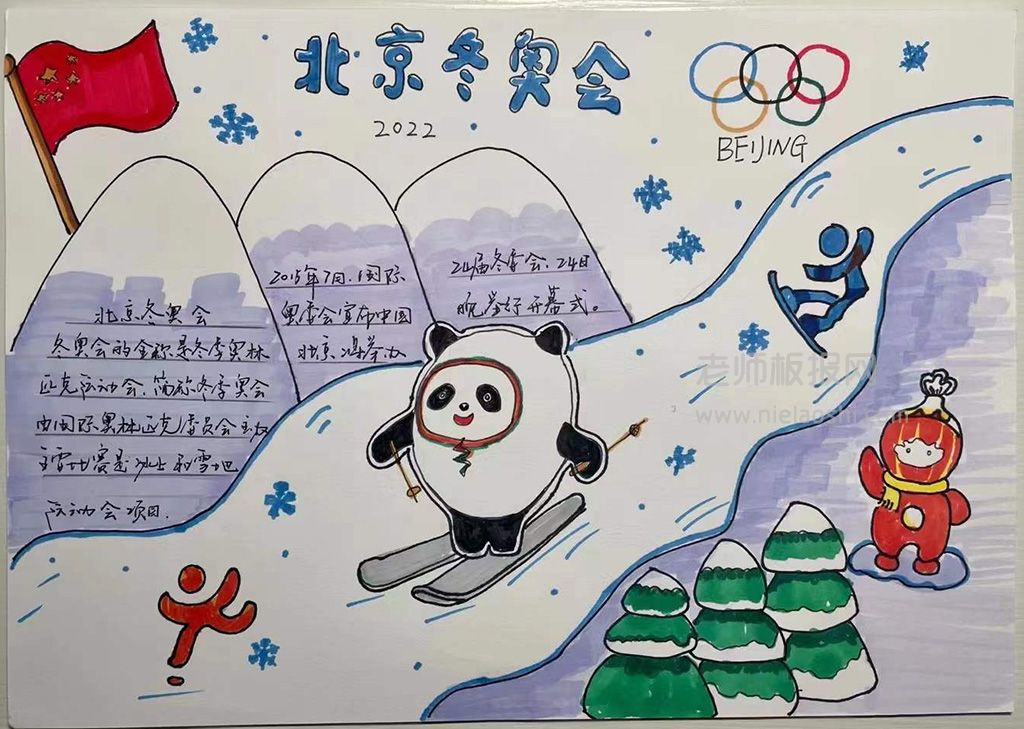 北京冬奥会
2022
BEIJING
北京冬奥会
冬奥会的全称是冬季奥林
匹克运动会、简称冬季奥会
由国际奥林匹克委员会主办
主要比赛是冰上和雪地
运动会项目.
2015年7月.1国际
奥委会宣布中国
北京举办
24届冬季会、24日
晚举行开幕式。
老师板报网
www.nielaoshi.com